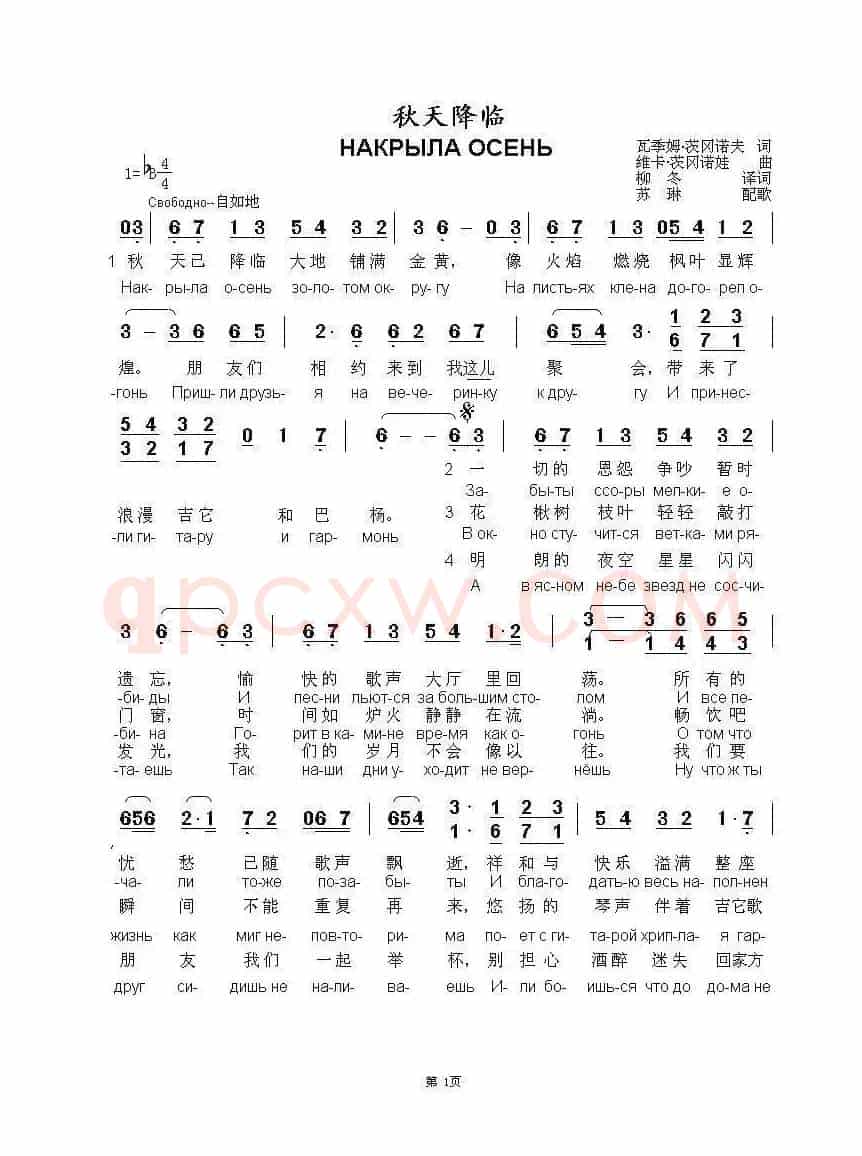 秋天降临
НАКРЫЛА ОСЕНЬ
瓦季姆·茨冈诺夫 词
维卡·茨冈诺娃 曲
柳 冬 译词
苏 琳 配歌
1=♭B 4/4
Свободно--自如地
03 | 6 7 1 3 5 4 3 2 | 3 6 – 0 3 | 6 7 1 3 05 4 1 2 |
1 秋 天已 降临 大地 铺满 金黄， 像 火焰 燃烧 枫叶 显辉
Нак- ры-ла о-сень зо-ло- том ок- ру-гу На листь-ях кле-на до-го- рел о-
3 – 3 6 6 5 | 2· 6 6 2 6 7 | 6 5 4 3· 1 2 3
6 7 1
煌。 朋 友们 相 约 来到 我这儿 聚 会，带 来了
-гонь Приш- ли друзь- я на ве-че- рин-ку к дру- гу И при-нес-
5 4 3 2
3 2 1 7 0 1 7 | 6 – – 6 3 | 6 7 1 3 5 4 3 2 |
2 一 切的 恩怨 争吵 暂时
За- бы-ты ссо-ры мел-ки- е о-
浪漫 吉它 和 巴 杨。 3 花 楸树 枝叶 轻轻 敲打
-ли ги- та-ру и гар- монь В ок- но сту- чит-ся вет-ка- ми ря-
4 明 朗的 夜空 星星 闪闪
А в яс-ном не-бе звезд не сос-чи-
qpcxw.com
3 6 – 6 3 | 6 7 1 3 5 4 1·2 | 3 – 3 6 6 5
1 – 1 4 4 3 |
遗 忘， 愉 快的 歌声 大厅 里回 荡。 所有的
-би-ды И пес-ни льют-ся за боль- шим сто- лом И все пе-
门 窗， 时 间如 炉火 静静 在流 淌。 畅饮吧
-би-на Го- рит в ка- ми-не вре-мя как о- гонь О том что
发 光， 我 们的 岁月 不会 像以 往。 我们要
-та-ешь Так на-ши дни у- хо-дит не вер- нёшь Ну что ж ты
656 2·1 7 2 06 7 | 654 3· 1 2 3
1· 6 7 1 | 5 4 3 2 1·7 |
忧 愁 已随 歌声 飘 逝，祥 和与 快乐 溢满 整座
-ча- ли то-же по-за- бы- ты И бла-го- дать-ю весь на- пол-нен
瞬 间 不能 重复 再 来，悠 扬的 琴声 伴着 吉它歌
жизнь как миг не- пов-то- ри- ма по- ет с ги- та-рой хрип-ла- я гар-
朋 友 我们 一起 举 杯，别 担心 酒醉 迷失 回家方
друг си- дишь не на-ли- ва- ешь И- ли бо- ишь-ся что до до-ма не
第 1页